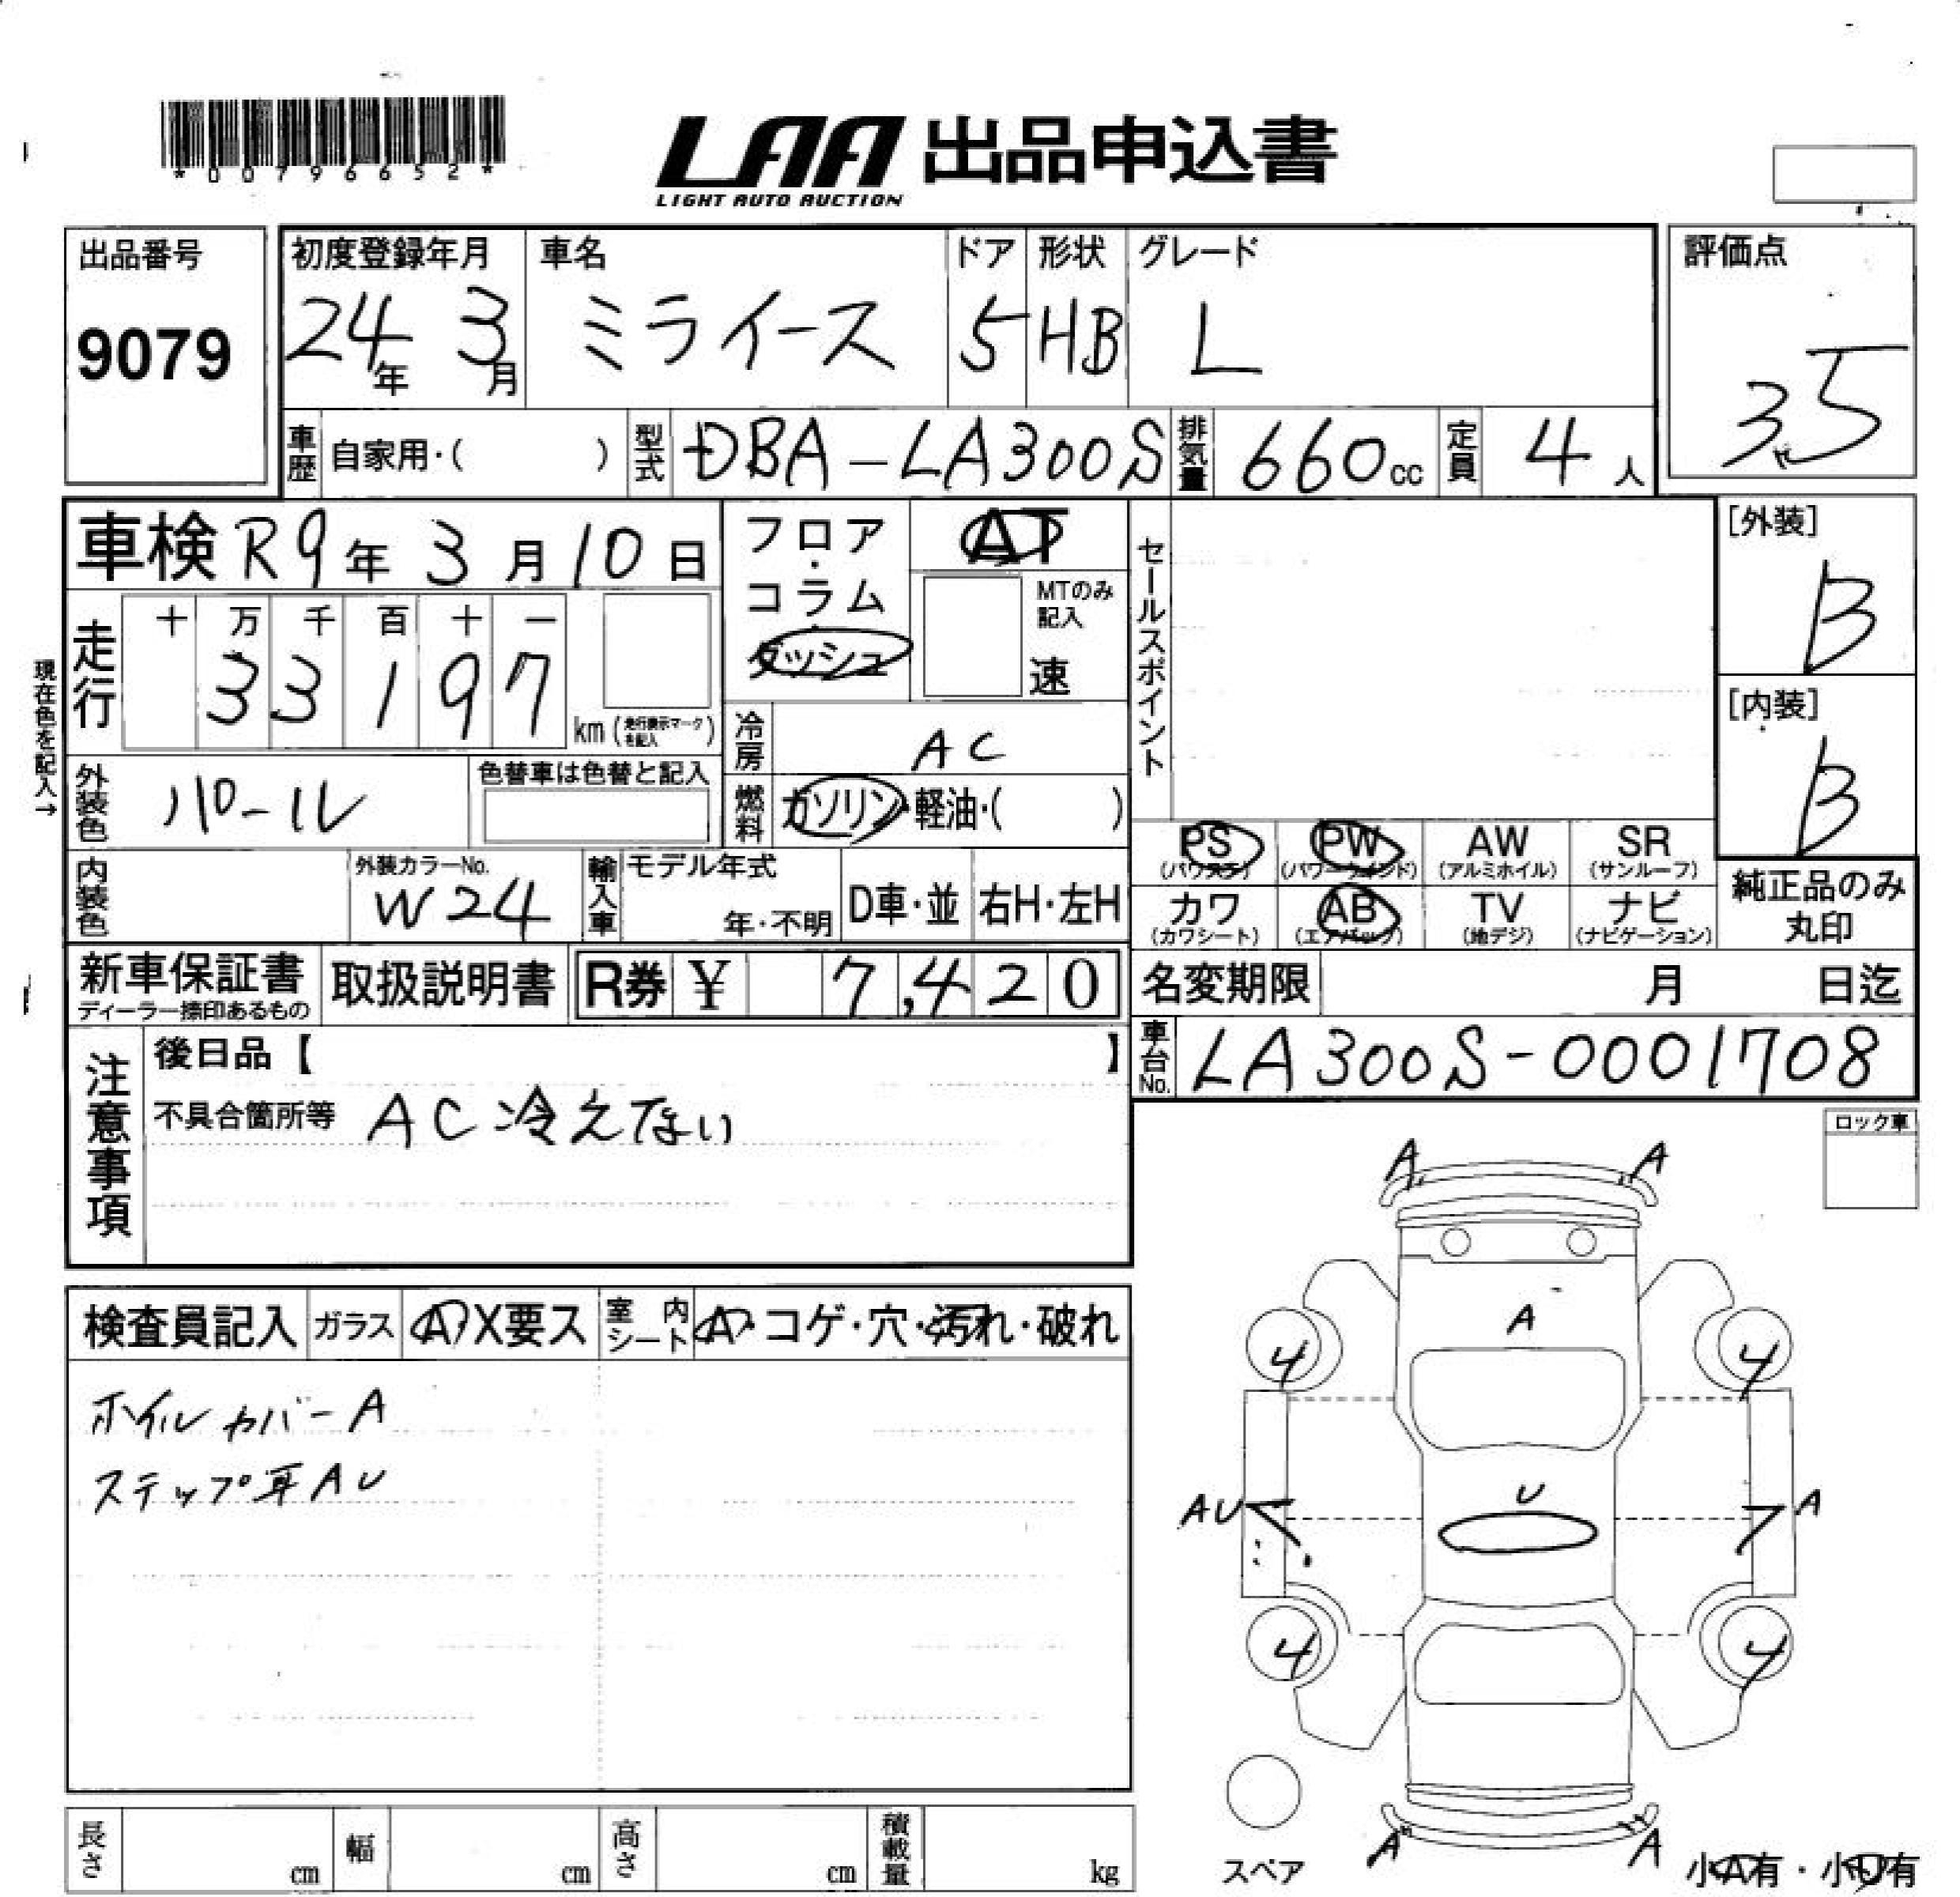 *00796652*
LAA 出品申込書
LIGHT AUTO AUCTION
出品番号
9079
初度登録年月
24年 3月
車名
ミライース
ドア
5
形状
HB
グレード
L
評価点
3.5
車歴 自家用・( )
型式 DBA-LA300S
排気量 660cc
定員 4人
車検 R9年 3月10日
フロア・コラム・ダッシュ
AT
MTのみ記入
速
セールスポイント
[外装]
B
[内装]
B
現在色を記入→
走行
十 万 千 百 十 一
3 3 1 9 7
km (走行表示マークを記入)
冷房 AC
燃料 ガソリン・軽油・( )
外装色 パール
色替車は色替と記入
内装色
外装カラーNo.
W24
輸入車
モデル年式
年・不明
D車・並
右H・左H
PS
(パワステ)
PW
(パワーウインド)
AW
(アルミホイル)
SR
(サンルーフ)
カワ
(カワシート)
AB
(エアバック)
TV
(地デジ)
ナビ
(ナビゲーション)
純正品のみ
丸印
新車保証書
ディーラー捺印あるもの
取扱説明書
R券 ¥ 7,420
名変期限 月 日迄
車台No. LA300S-0001708
注意事項
後日品【 】
不具合箇所等 AC冷えない
ロック車
検査員記入
ガラス
A・X要ス
室内シート
A・コゲ・穴・汚れ・破れ
ホイルカバーA
ステップ耳AU
A A
A
4 4
U
AU A
4 4
A A
スペア
小A有・小U有
長さ cm
幅 cm
高さ cm
積載量 kg